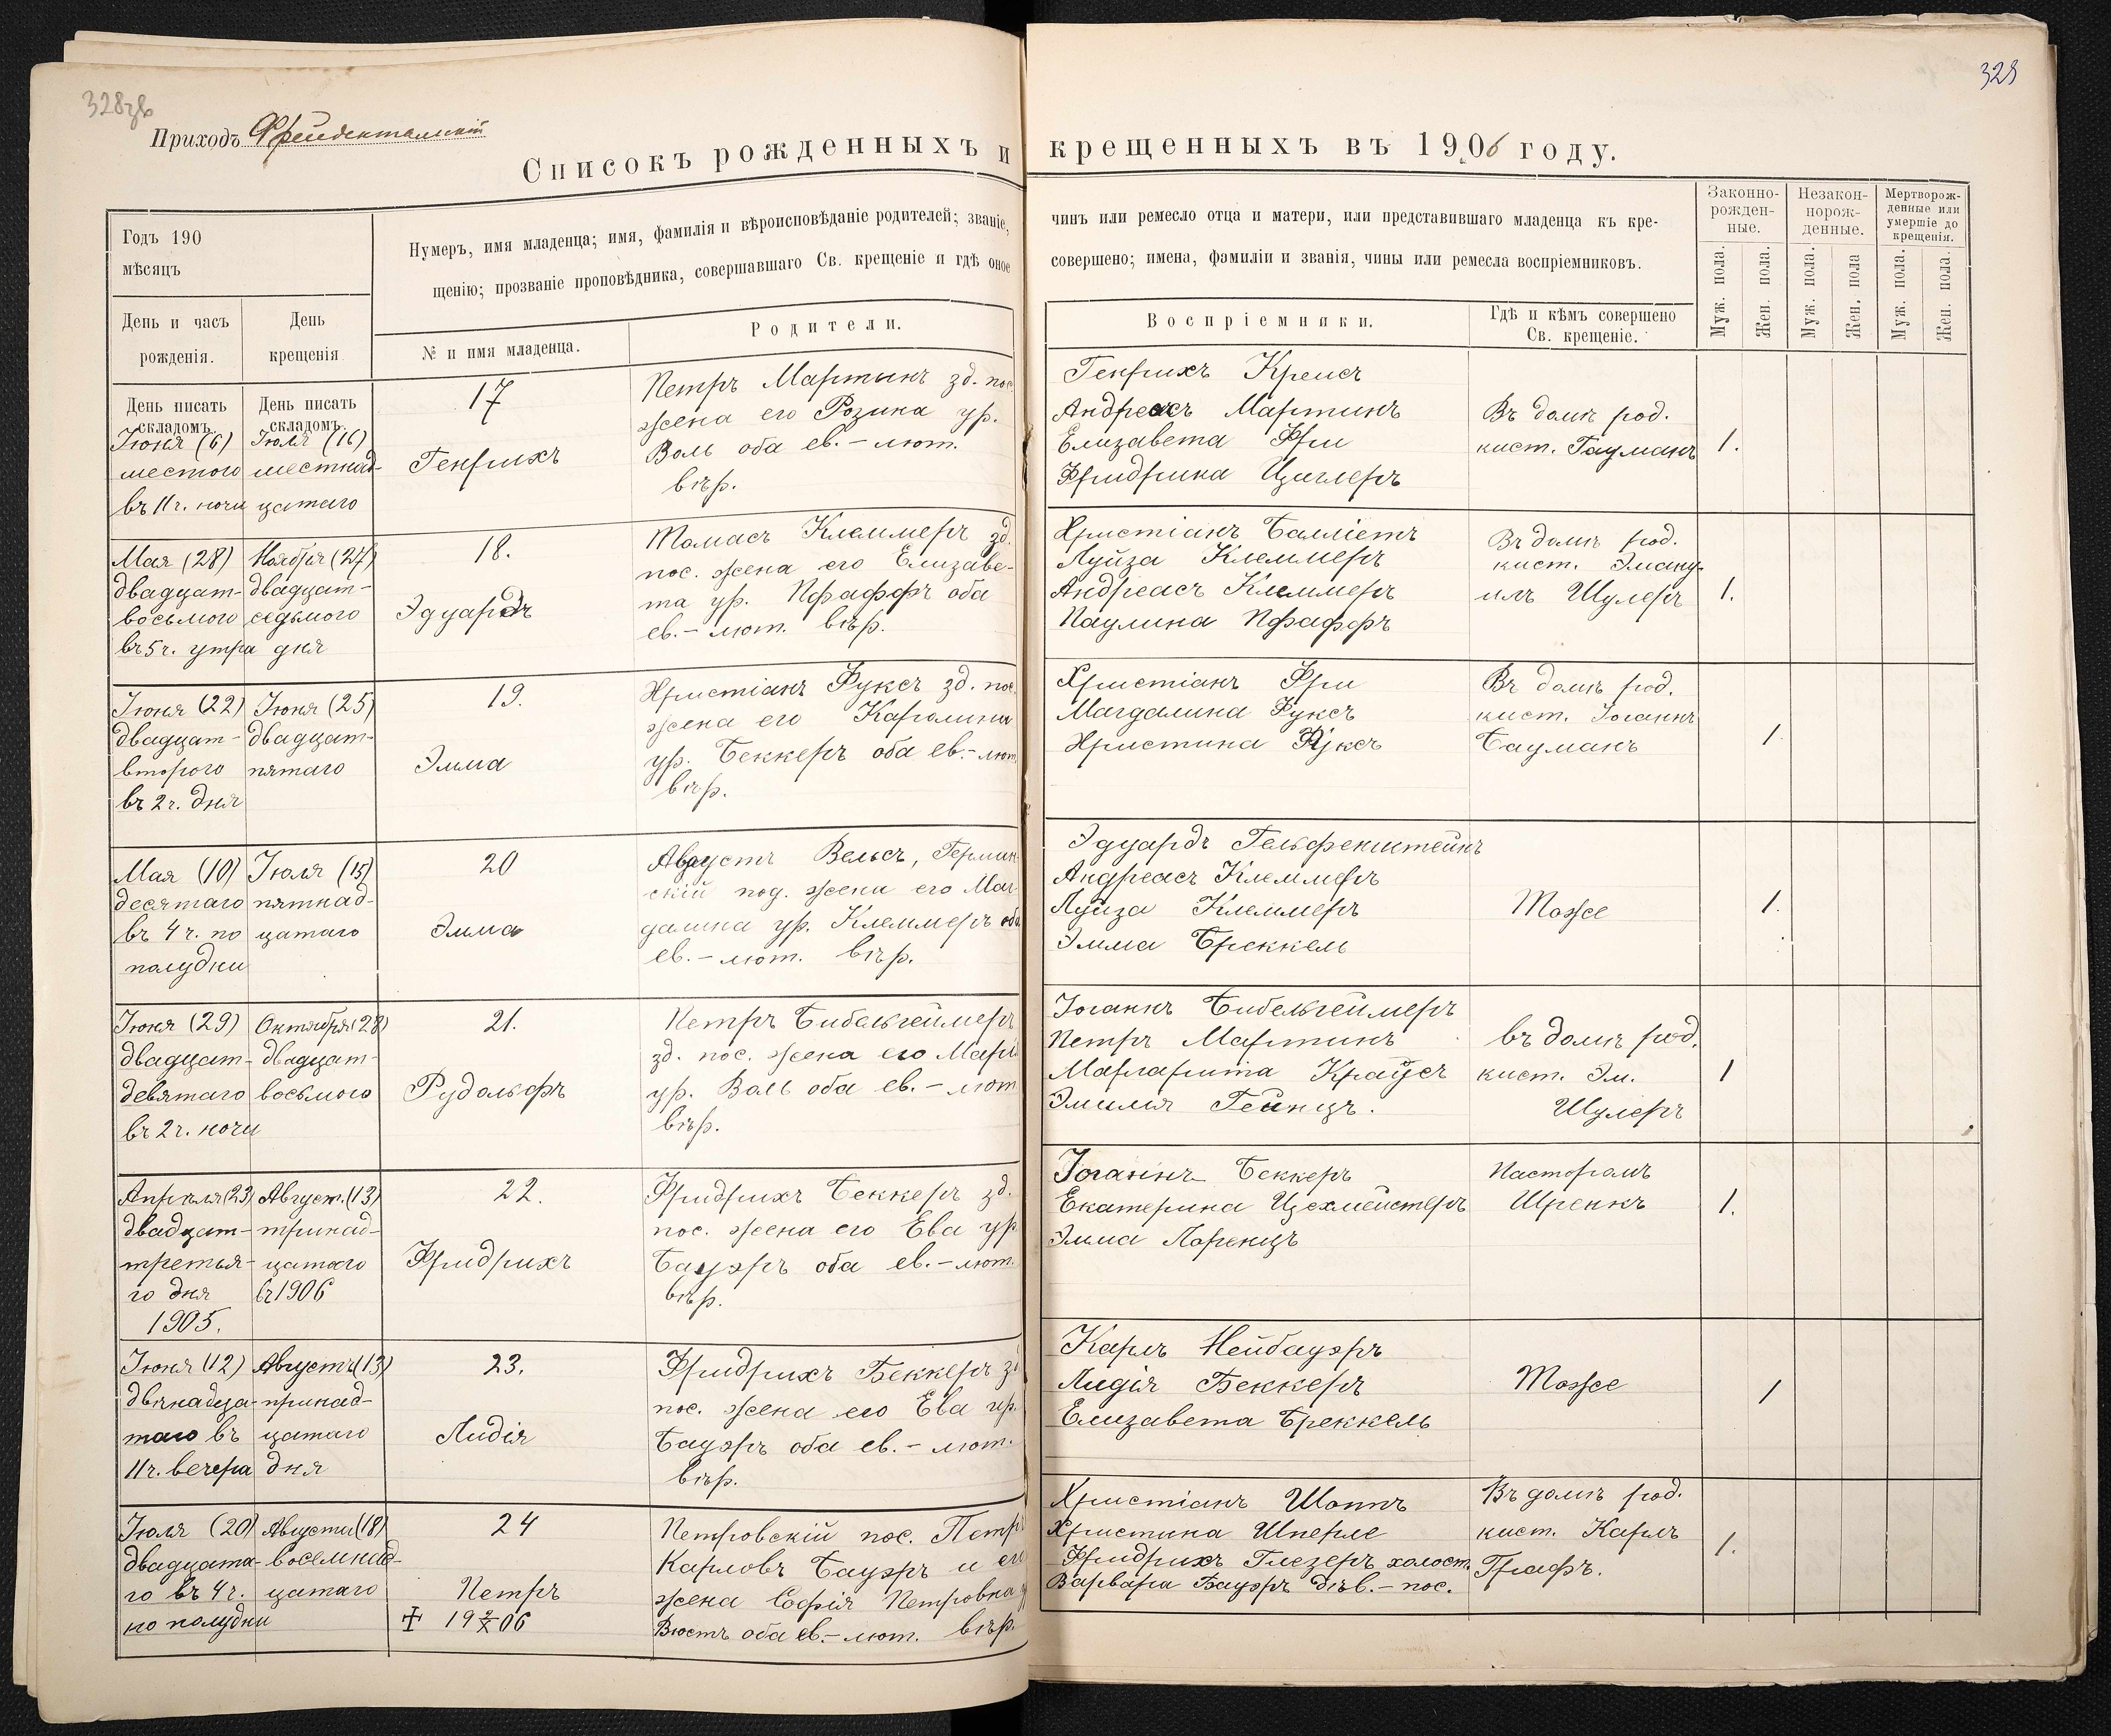 328
329
Приходъ Фрейдентальскій
Списокъ рожденныхъ и крещенныхъ въ 1906 году.
Годъ 190
мѣсяцъ
Нумеръ, имя младенца; имя, фамилія и вѣроисповѣданіе родителей; званіе, чинъ или ремесло отца и матери, или представившаго младенца къ кре-
щенію; прозваніе проповѣдника, совершавшаго Св. крещеніе и гдѣ оное совершено; имена, фамиліи и званія, чины или ремесла воспріемниковъ.
Законно-
рожден-
ные.
Незакон-
норож-
денные.
Мертворож-
денные или
умершіе до
крещенія.
Муж. пола.
Жен. пола.
Муж. пола.
Жен. пола
Муж. пола.
Жен. пола.
День и часъ
рожденія.
День
крещенія
№ и имя младенца.
Родители.
Воспріемники.
Гдѣ и кѣмъ совершено
Св. крещеніе.
День писать
складомъ.
День писать
складомъ.
Іюня (6)
шестого
въ 11 ч. ночи
Іюля (16)
шестнад-
цатаго
17
Генрихъ
Петръ Мартинъ зд. пос.
жена его Розина ур.
Воль оба ев.-лют.
вѣр.
Генрихъ Крейсъ
Андреасъ Мартинъ
Елизавета Фри
Фридрика Циглеръ
Въ домѣ род.
кист. Бауманъ
1.
Мая (28)
двадцат-
восьмого
въ 5 ч. утра
Ноября (27)
двадцат-
седьмого
дня
18.
Эдуардъ
Томасъ Клеммеръ зд.
пос. жена его Елизаве-
та ур. Пфаффъ оба
ев.-лют. вѣр.
Христіанъ Балліетъ
Луйза Клеммеръ
Андреасъ Клеммеръ
Паулина Пфаффъ
Въ домѣ род.
кист. Эману-
илъ Шулеръ
1.
Іюня (22)
двадцат-
второго
въ 2 ч. дня
Іюня (25)
двадцат-
пятаго
19.
Эмма
Христіанъ Фуксъ зд. пос.
жена его Каролина
ур. Беккеръ оба ев.-лют.
вѣр.
Христіанъ Фри
Магдалина Фуксъ
Христина Фуксъ
Въ домѣ род.
кист. Іоганнъ
Бауманъ
1
Мая (10)
десятаго
въ 4 ч. по
полудни
Іюля (15)
пятнад-
цатаго
20
Эмма
Августъ Вельсъ, Герман-
скій под. жена его Маг-
далина ур. Клеммеръ оба
ев.-лют. вѣр.
Эдуардъ Гельфенштейнъ
Андреасъ Клеммеръ
Луйза Клеммеръ
Эмма Бреккель
Тоже
1.
Іюня (29)
двадцат-
девятаго
въ 2 ч. ночи
Октября (28)
двадцат-
восьмого
21.
Рудольфъ
Петръ Бибельгеймеръ
зд. пос. жена его Марі
ур. Воль оба ев.-лют
вѣр.
Іоганнъ Бибельгеймеръ
Петръ Мартинъ
Маргарита Краусъ
Эмилія Гейнцъ.
въ домѣ род.
кист. Эм.
Шулеръ
1
Апрѣля (23)
двадцат-
третья-
го дня
1905.
Август. (13)
тринад-
цатаго
въ 1906
22.
Фридрихъ
Фридрихъ Беккеръ зд.
пос. жена его Ева ур
Бауэръ оба ев.-лют.
вѣр.
Іоганнъ Беккеръ
Екатерина Цехмейстеръ
Эмма Лоренцъ
Пасторомъ
Шренкъ
1.
Іюня (12)
двѣнадца-
таго въ
11 ч. вечера
Августа (13)
тринад-
цатаго
дня
23.
Лидія
Фридрихъ Беккеръ зд
пос. жена его Ева ур.
Бауэръ оба ев.-лют.
вѣр.
Карлъ Нейбауэръ
Лидія Беккеръ
Елизавета Бреккель
Тоже
1
Іюля (20)
двадцата-
го въ 4 ч.
по полудни
Августа (18)
восемнад-
цатаго
24
Петръ
✝ 19 2/X 06
Петровскій пос. Петръ
Карловъ Бауэръ и его
жена Софія Петровна
Вюстъ оба ев.-лют. вѣр.
Христіанъ Шоппъ
Христина Шперле
Фридрихъ Глезеръ холост.
Варвара Бауэръ дѣв.-пос.
Въ домѣ род.
кист. Карлъ
Графъ.
1.